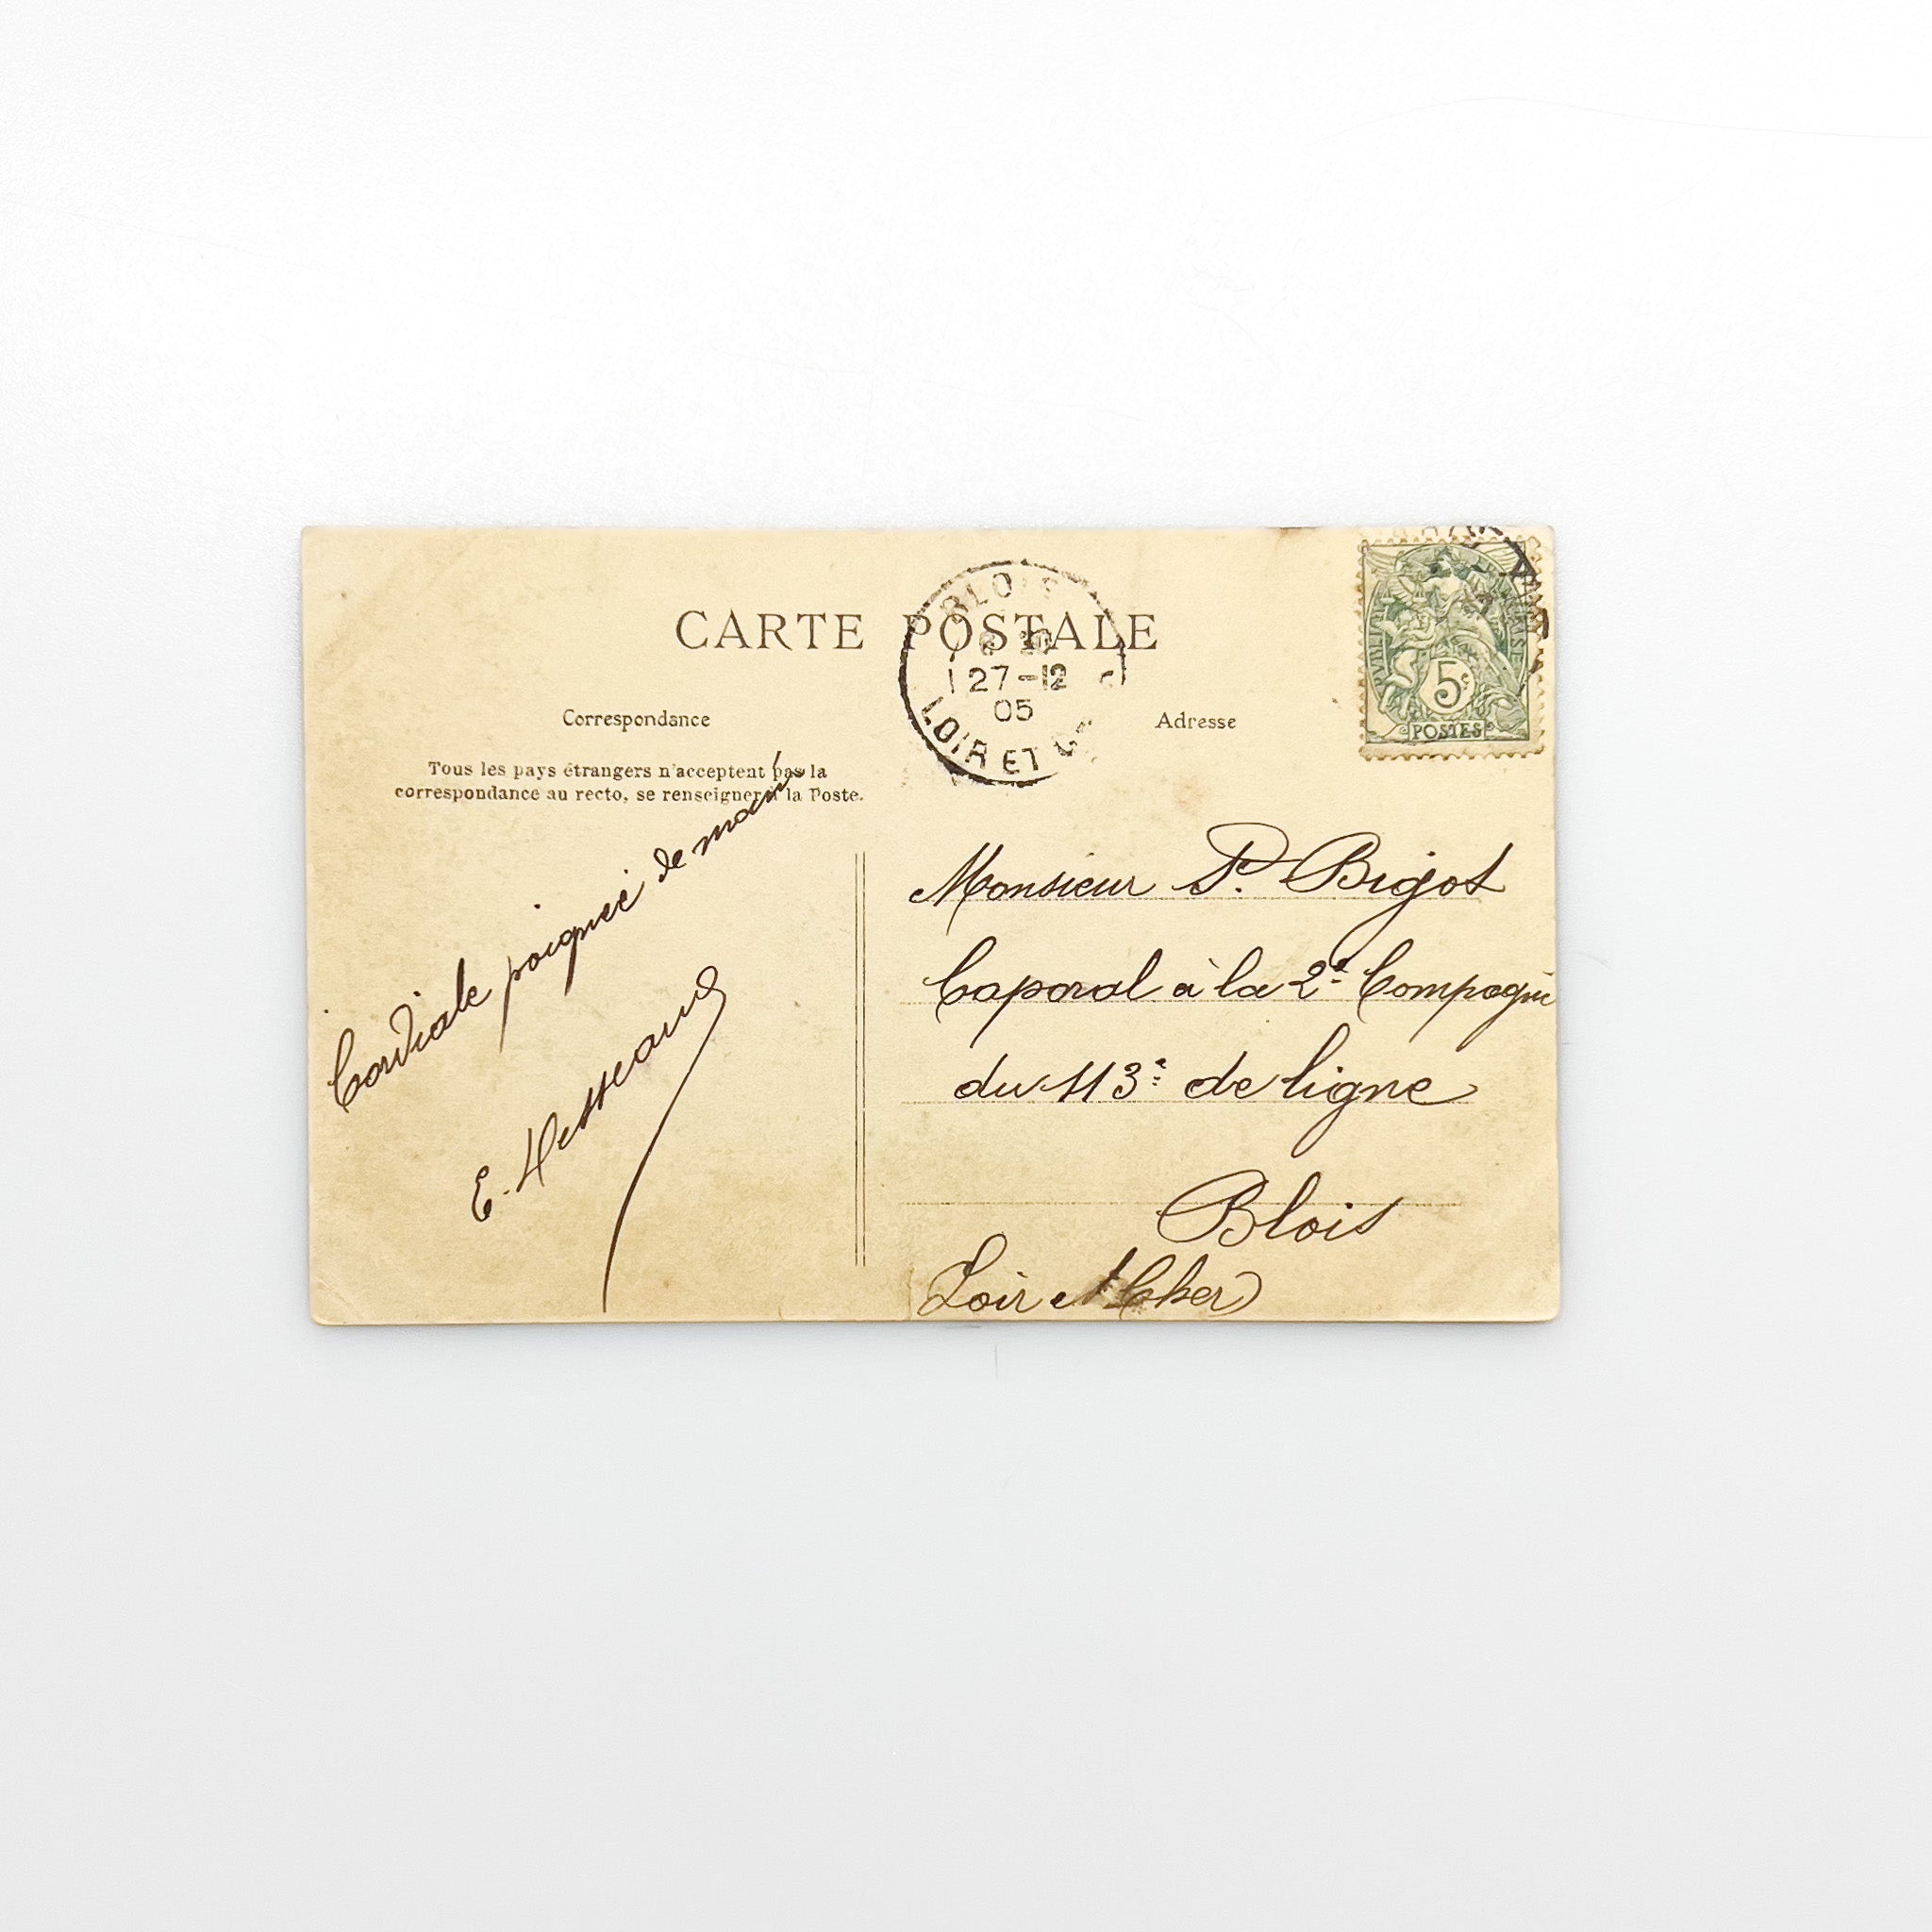 CARTE POSTALE
BLOIS
27-12
05
LOIR ET
5c
POSTES
Correspondance
Adresse
Tous les pays étrangers n'acceptent pas la
correspondance au recto, se renseigner à la Poste.
Cordiale poignée de main
E.
Monsieur P. Bigot
Caporal à la 2e Compagnie
du 113e de ligne
Blois
Loir et Cher